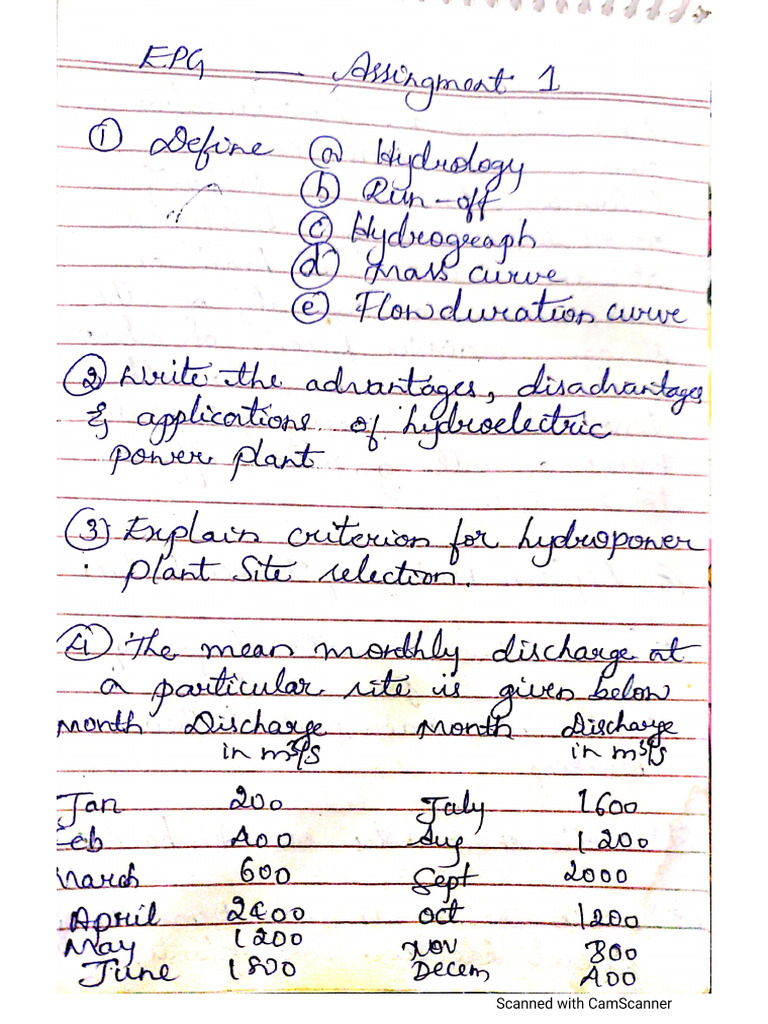 EPG — Assingment 1
① Define ⓐ Hydrology
ⓑ Run-off
ⓒ Hydrograph
ⓓ Mass curve
ⓔ Flow duration curve
② Write the advantages, disadvantages
& applications of hydroelectric
power plant
③ Explain criterion for hydropower
plant Site selection.
④ The mean monthly discharge at
a particular site is given below
Month Discharge in m³/s Month Discharge in m³/s
Jan 200 July 1600
Feb 400 Aug 1200
March 600 Sept 2000
April 2400 Oct 1200
May 1200 Nov 800
June 1800 Decem 400
Scanned with CamScanner